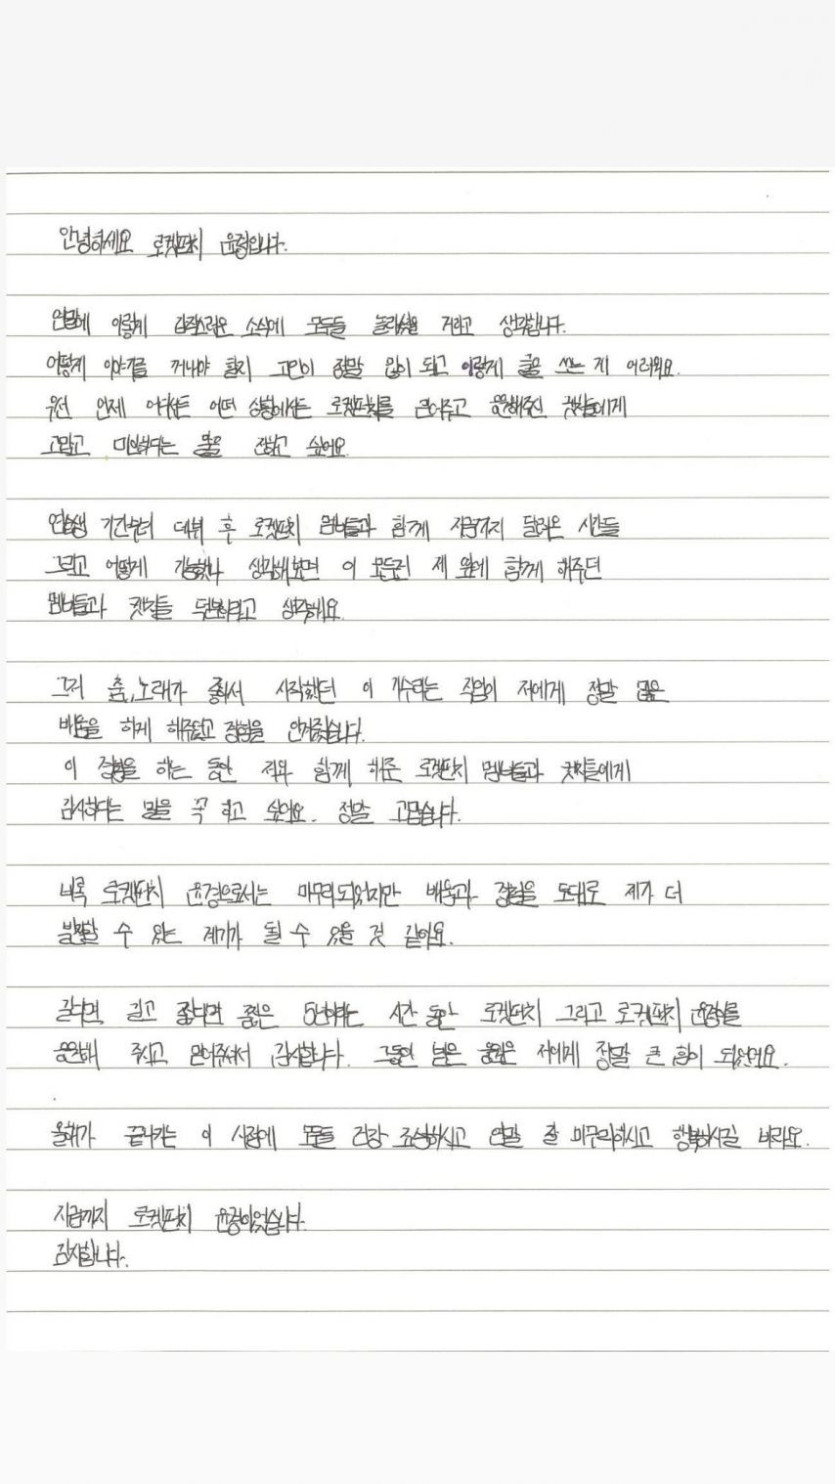 안녕하세요 로켓펀치 윤경입니다.
연말에 이렇게 갑작스러운 소식에 모두들 놀라셨을 거라고 생각합니다.
어떻게 이야기를 꺼내야 할지 고민이 정말 많이 되고 이렇게 글을 쓰는 게 어려워요.
우선 언제 어디서든 어떤 상황에서든 로켓펀치를 믿어주고 응원해주신 켓치들에게
고맙고 미안하다는 말을 전하고 싶어요.
연습생 기간부터 데뷔 후 로켓펀치 멤버들과 함께 지금까지 달려온 시간들
그리고 어떻게 가능했나 생각해보면 이 모든건 제 옆에 함께 해주던
멤버들과 켓치들 덕분이라고 생각해요.
그저 춤,노래가 좋아서 시작했던 이 가수라는 직업이 저에게 정말 많은
배움을 하게 해주었고 경험을 안겨줬습니다.
이 경험을 하는 동안 저와 함께 해준 로켓펀치 멤버들과 켓치들에게
감사하다는 말을 꼭 하고 싶어요. 정말 고맙습니다.
비록 로켓펀치 윤경으로서는 마무리되었지만 배움과 경험을 토대로 제가 더
발전할 수 있는 계기가 될 수 있을 것 같아요.
길다면 길고 짧다면 짧은 5년이라는 시간 동안 로켓펀치 그리고 로켓펀치 윤경이를
응원해 주시고 믿어주셔서 감사합니다. 그동안 보낸 응원은 저에게 정말 큰 힘이 되었어요.
올해가 끝나가는 이 시점에 모두들 건강 조심하시고 연말 잘 마무리하시고 행복하시길 바라요.
지금까지 로켓펀치 윤경이었습니다.
감사합니다.